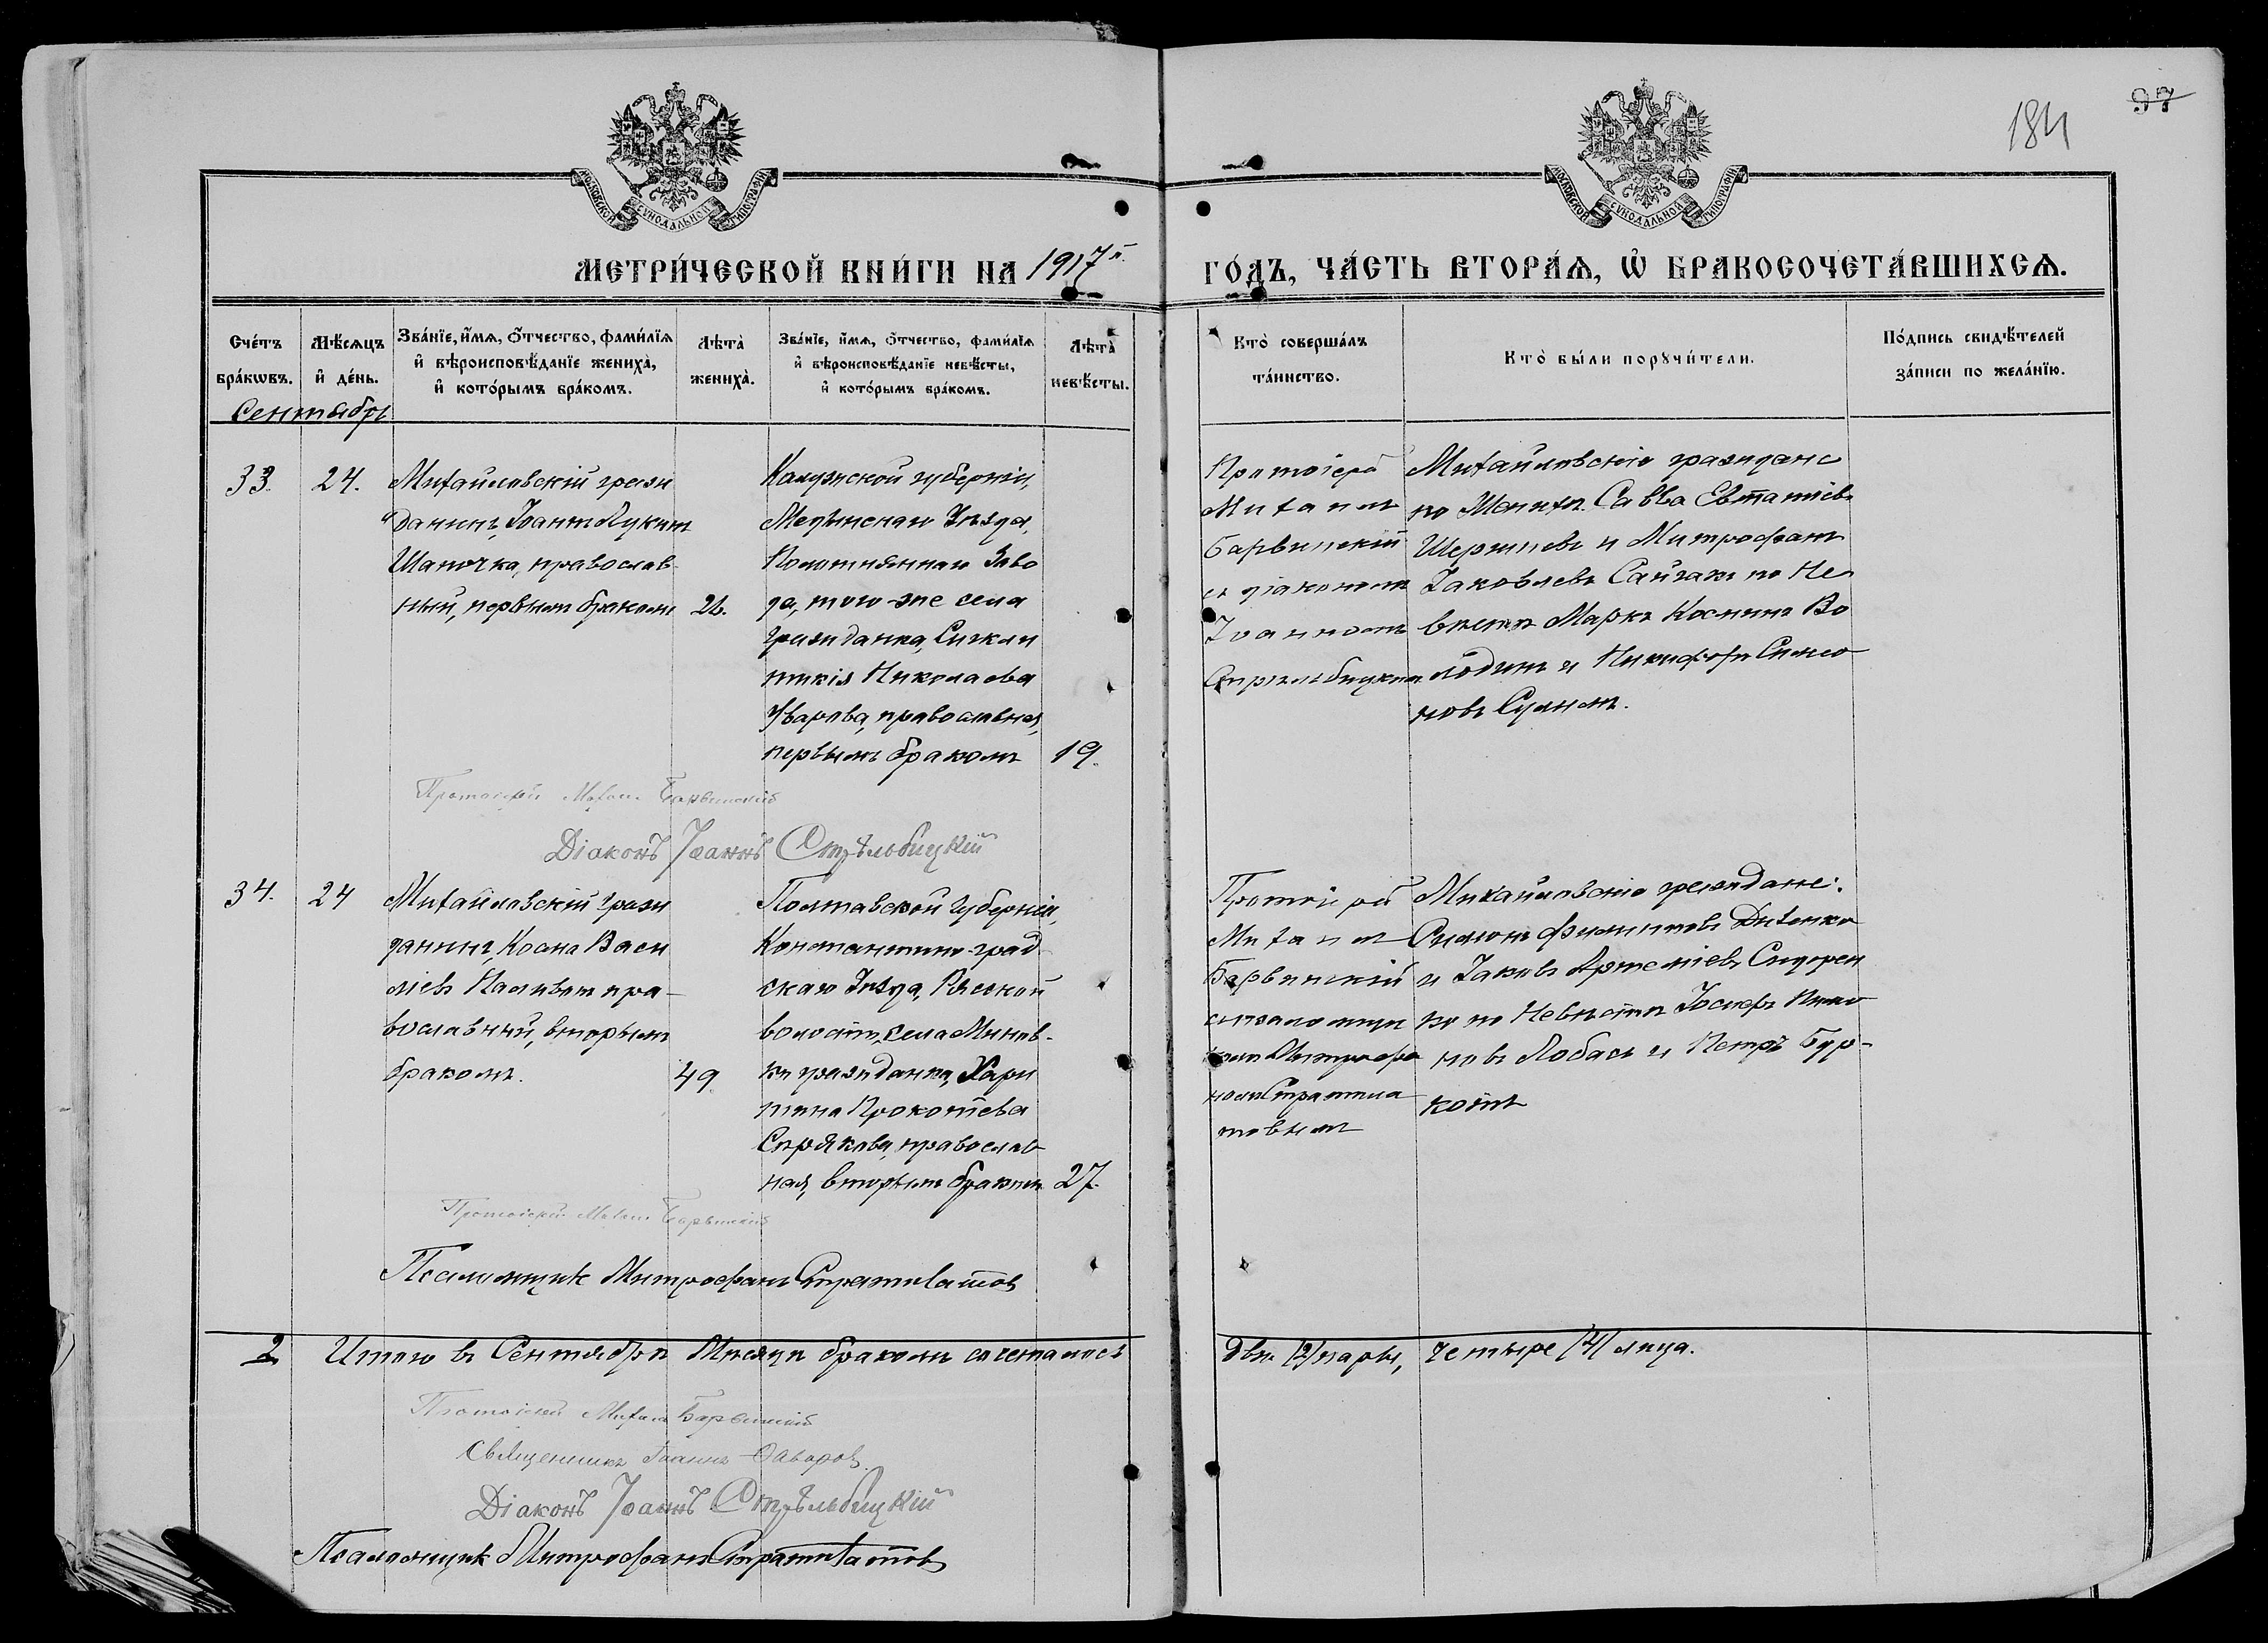 184
97
МОСКОВСКОЙ СѴНОДАЛЬНОЙ ТИПОГРАФІИ
МОСКОВСКОЙ СѴНОДАЛЬНОЙ ТИПОГРАФІИ
МЕТРИ́ЧЕСКОЙ КНИ́ГИ НА 1917й
ГО́ДЪ, ЧА́СТЬ ВТОРА́Ѧ, Ѡ҆ БРАКОСОЧЕТА́ВШИХСѦ.
Сче́тъ бра́кѡвъ.
Мѣ́сѧцъ и҆ де́нь.
Зва́нїе, и҆́мѧ, ѻ҆́тчество, фами́лїѧ и҆ вѣроисповѣ́данїе жениха̀, и҆ кото́рымъ бра́комъ.
Лѣта̀ жениха̀.
Зва́нїе, и҆́мѧ, ѻ҆́тчество, фами́лїѧ и҆ вѣроисповѣ́данїе невѣ́сты, и҆ кото́рымъ бра́комъ.
Лѣта̀ невѣ́сты.
Кто̀ соверша́лъ та́инство.
Кто̀ бы́ли порꙋчи́тели.
По́дпись свидѣ́телей за́писи по жела́нїю.
Сентябрь
33.
24.
Михайловскій граж
данинъ, Іоаннъ Лукинъ
Шапочка, православ-
ный, первымъ бракомъ
26.
Калужской губерніи,
Медынскаго Уѣзда,
Полотнянаго Заво
да, того-же села
гражданка, Синкли
тикія Николаева
Уварова, православная,
первымъ бракомъ
19.
Протоіерей
Михаилъ
Барвинскій
съ діакономъ
Іоанномъ
Стрѣльбицкимъ
Михайловскіе граждане
по Женихѣ Савва Евстатіевъ
и Митрофанъ
Іаковлевъ Сайгакъ по Не
вѣстѣ Маркъ Косминъ Во
лодинъ и Никифоръ Симео
новъ
Протоіерей Михаилъ Барвинскій
Діаконъ Іоаннъ Стрѣльбицкій
34.
24
Михайловскій граж
данинъ, Косма Васи
ліевъ пра-
вославный, вторымъ
бракомъ.
49.
Полтавской губерніи,
Константино-град
скаго Уѣзда, Ряской
волости, села Минов-
ки гражданка, Хари
тина Прокопіева
Спрякова, православ
ная, вторымъ бракомъ
27.
Протоіерей
Михаилъ
Барвинскій
съ псаломщи
комъ Митрофа
номъ Стратила
товымъ
Михайловскіе граждане:
Симеонъ Филипповъ Дихенко
и Іаковъ Артеміевъ Сидорен
ко по Невѣстѣ Іосифъ
новъ Лобасъ и Петръ Бур-
Протоіерей Михаилъ Барвинскій
Псаломщикъ Митрофанъ Стратилатовъ
2
Итого въ Сентябрѣ Мѣсяцѣ бракомъ сочеталось
двѣ /2/ пары, четыре /4/ лица.
Протоіерей Михаилъ Барвинскій
Священникъ Іоаннъ
Діаконъ Іоаннъ Стрѣльбицкій
Псаломщикъ Митрофанъ Стратилатовъ